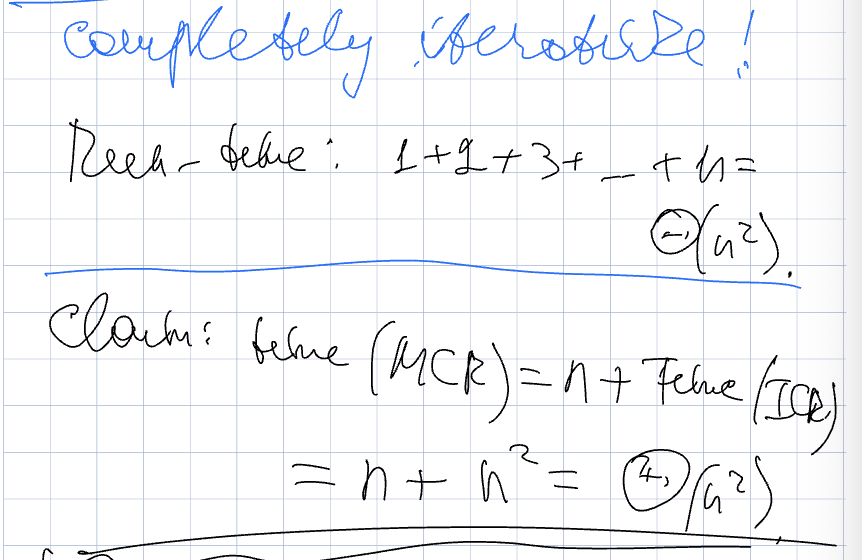 completely iteratize!
Run-time: 1+2+3+ _ + n =
Θ(n²).
Claim: time (MCR) = n + Time (ICR)
= n + n² = Θ(n²)